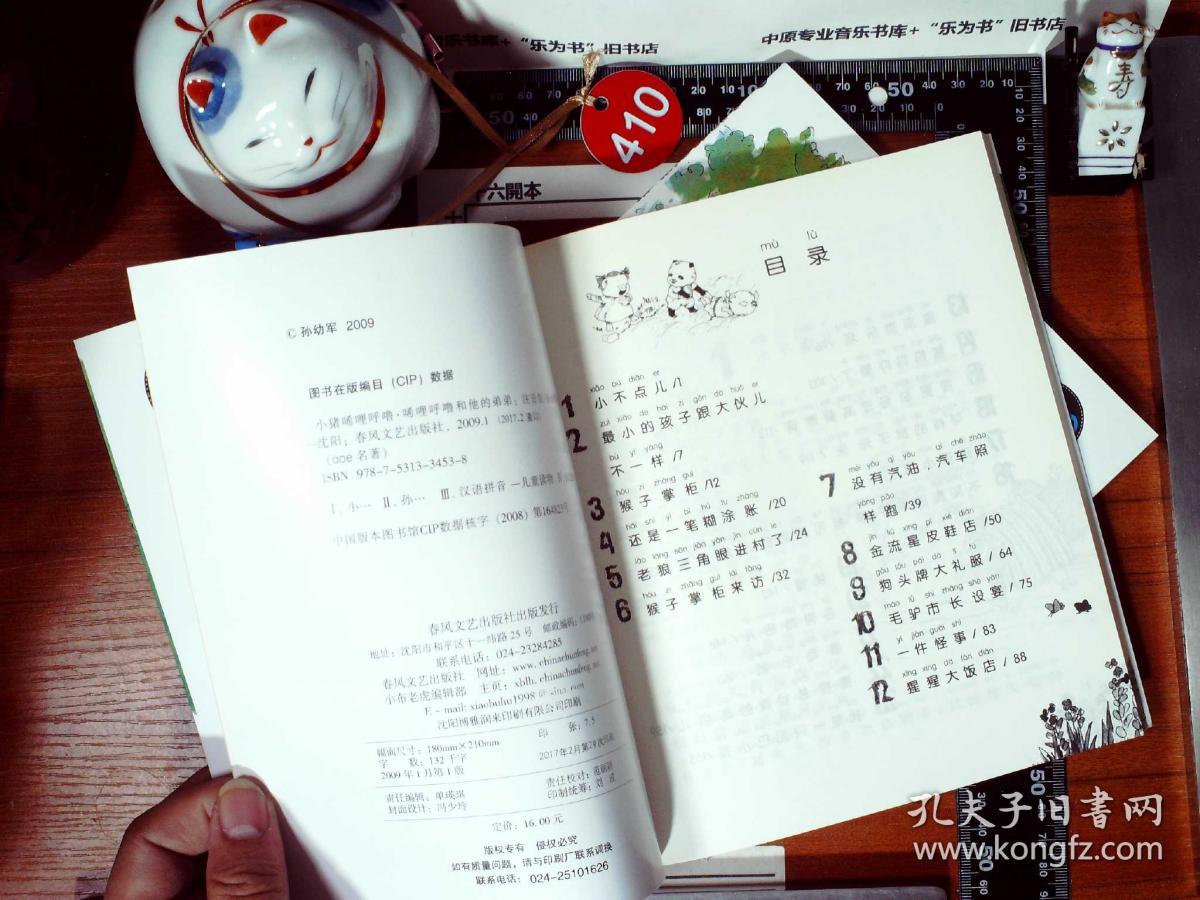 乐书库+“乐为书”旧书店
中原专业音乐书库+“乐为书”旧书店
410
寿
十六開本
© 孙幼军 2009
图书在版编目(CIP)数据
小猪唏哩呼噜·唏哩呼噜和他的弟弟:注音
—沈阳:春风文艺出版社,2009.1(2017.2重印)
名著)
ISBN 978-7-5313-3453-8
Ⅰ.小… Ⅱ.孙… Ⅲ.汉语拼音—儿童读物
中国版本图书馆CIP数据核字(2008)第164823号
春风文艺出版社出版发行
地址:沈阳市和平区十一纬路25号 邮政编码:
联系电话:024-23284285
春风文艺出版社 网址:www.chinachunfeng.net
小布老虎编辑部 主页:xblh.chinachunfeng.net
E-mail:xiaobuhu1998@sina.com
沈阳博雅润来印刷有限公司印刷
幅面尺寸:180mm×210mm 印 张:7.5
字 数:132千字 2017年2月第29次
2009年1月第1版
责任编辑:单瑛琪 责任校对:
封面设计:冯少玲 印制统筹:刘 成
定价:16.00元
版权专有 侵权必究
如有质量问题,请与印刷厂联系调换
联系电话:024-25101626
mù lù
目录
xiǎo bù diǎn er
1 小不点儿/1
zuì xiǎo de hái zi gēn dà huǒ er
2 最小的孩子跟大伙儿
bù yí yàng
不一样/7
hóu zi zhǎng guì
3 猴子掌柜/12
hái shì yì bǐ hú tu zhàng
4 还是一笔糊涂账/20
lǎo láng sān jiǎo yǎn jìn cūn le
5 老狼三角眼进村了/24
hóu zi zhǎng guì lái fǎng
6 猴子掌柜来访/32
méi yǒu qì yóu qì chē zhào
7 没有汽油,汽车照
yàng pǎo
样跑/39
jīn liú xīng pí xié diàn
8 金流星皮鞋店/50
gǒu tóu pái dà lǐ fú
9 狗头牌大礼服/64
máo lǘ shì zhǎng shè yàn
10 毛驴市长设宴/75
yí jiàn guài shì
11 一件怪事/83
xīng xing dà fàn diàn
12 猩猩大饭店/88
孔夫子旧书网
www.kongfz.com